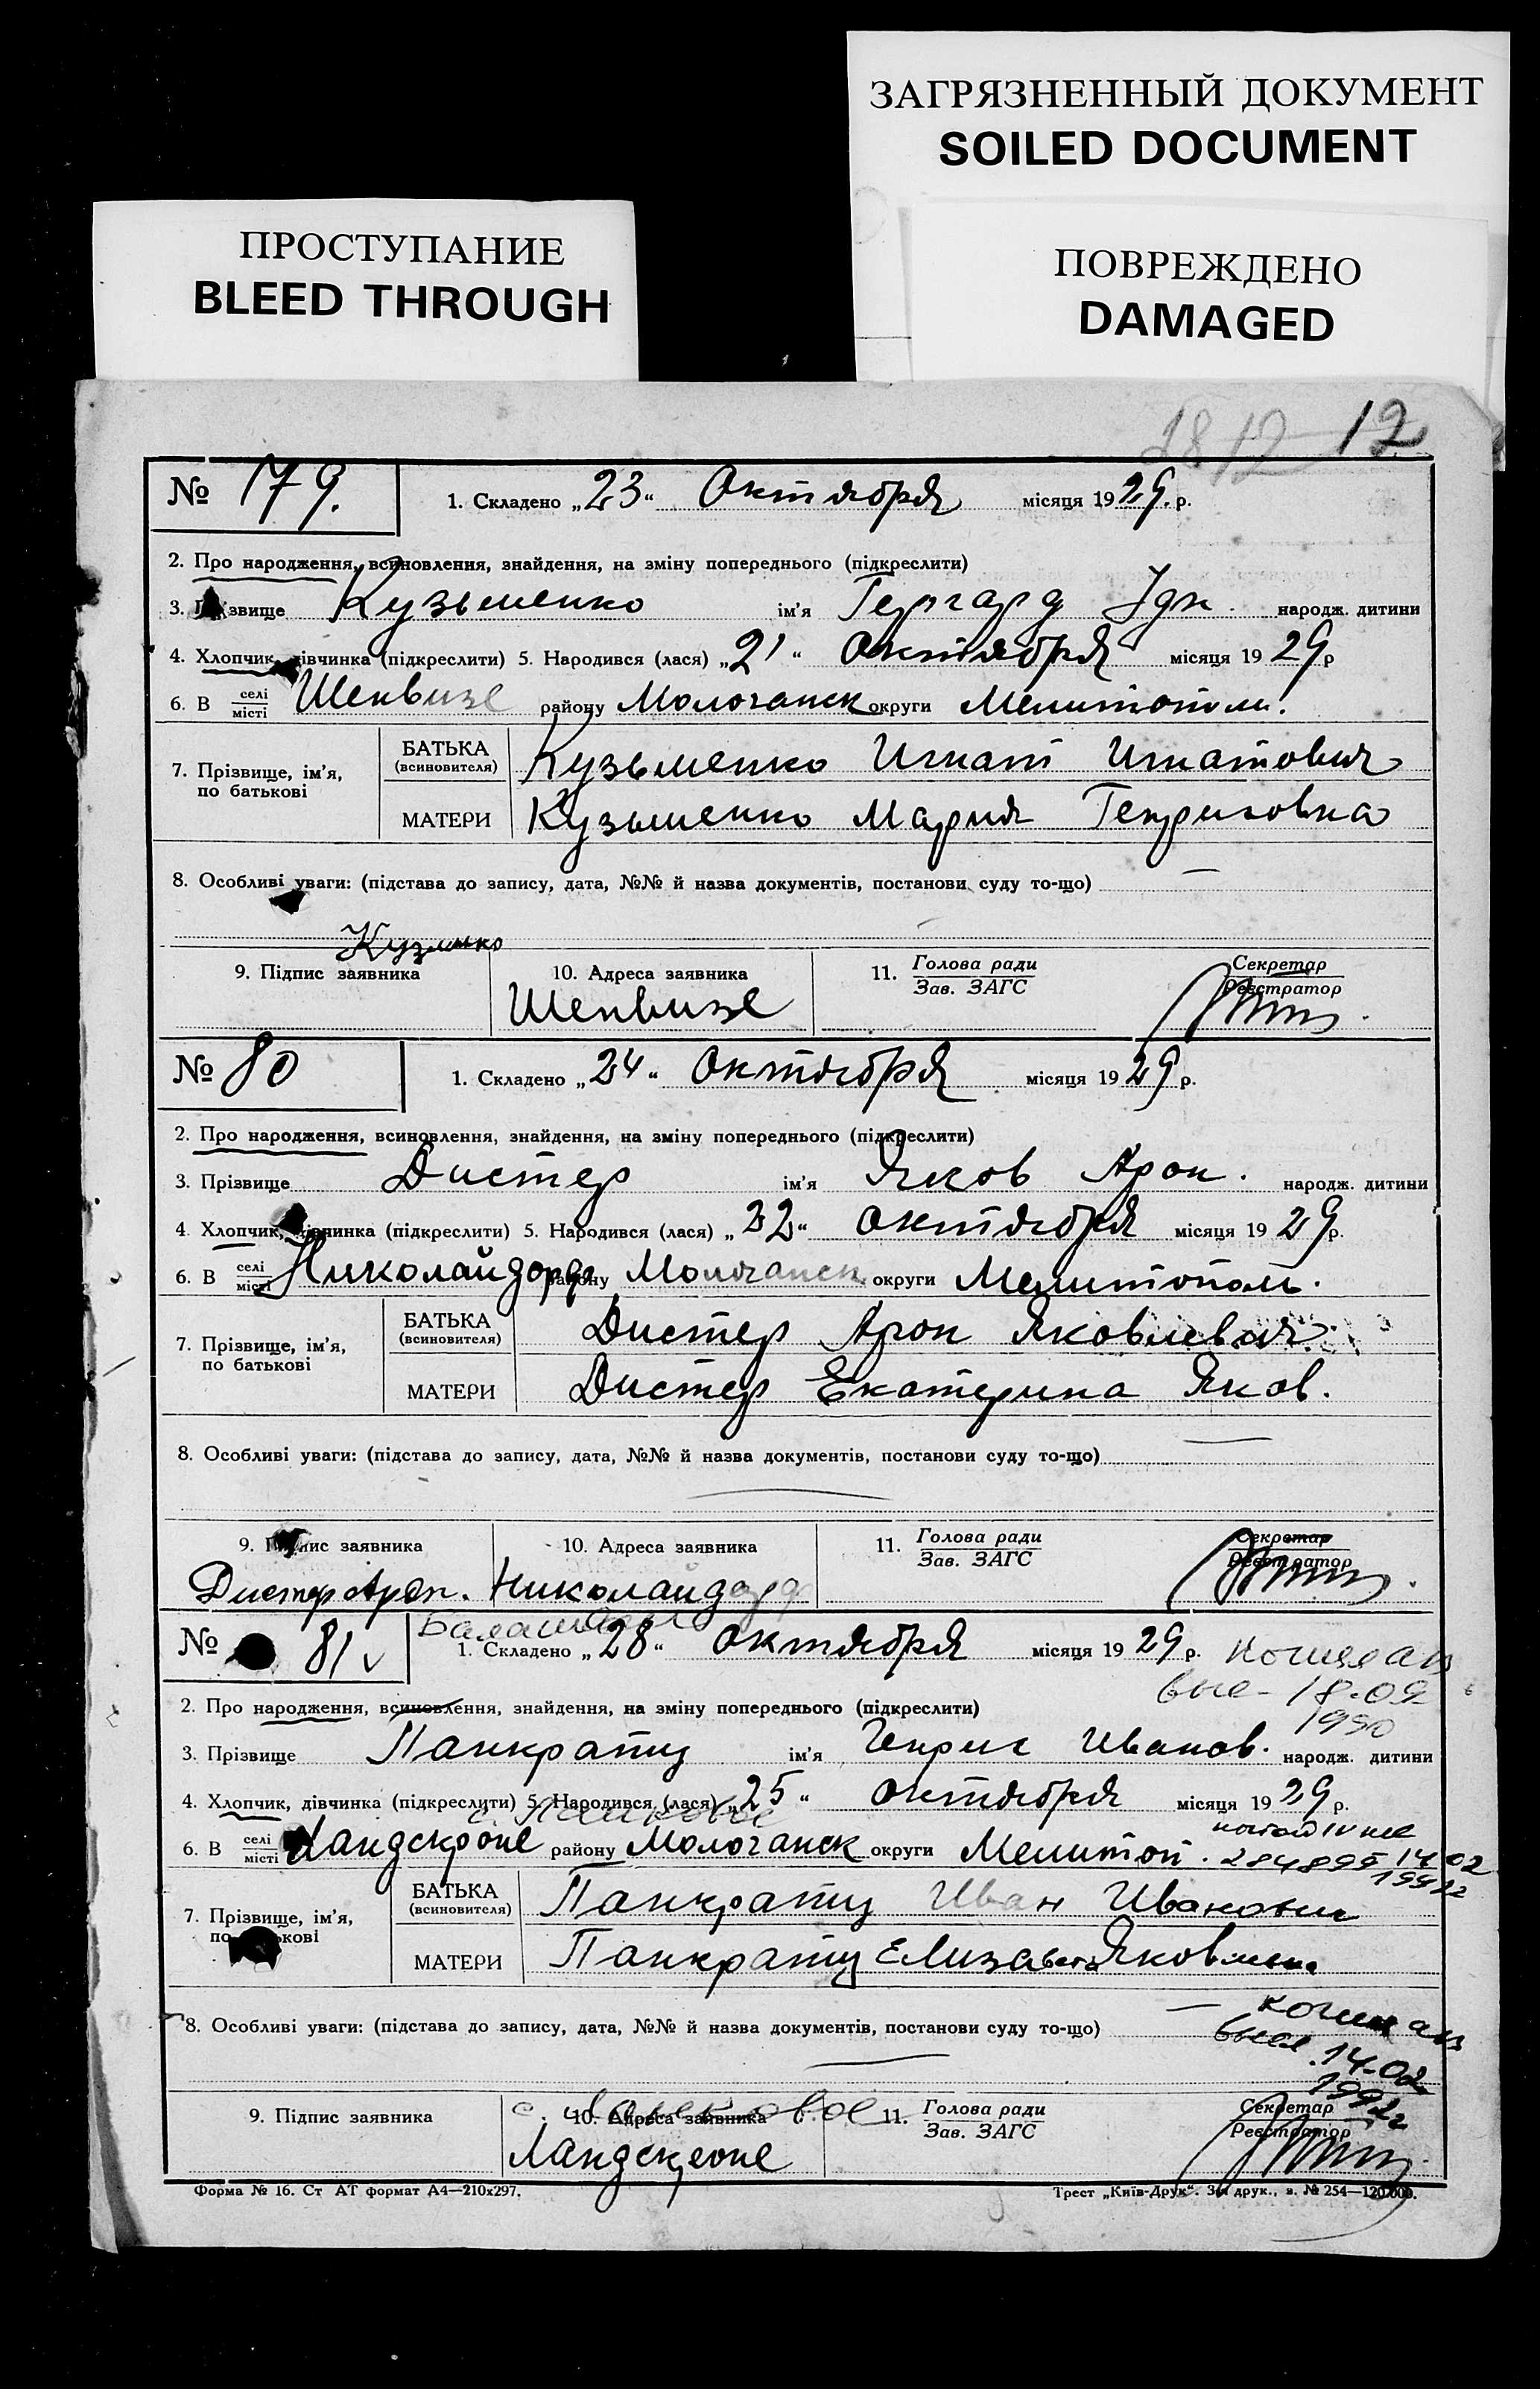 ЗАГРЯЗНЕННЫЙ ДОКУМЕНТ
SOILED DOCUMENT
ПРОСТУПАНИЕ
BLEED THROUGH
ПОВРЕЖДЕНО
DAMAGED
18 12 12
№ 179. 1. Складено „23“ Октября місяця 1929. р.
2. Про народження, всиновлення, знайдення, на зміну попереднього (підкреслити)
3. Прізвище Кузьменко ім'я Гергард народж. дитини
4. Хлопчик, дівчинка (підкреслити) 5. Народився (лася) „21“ Октября місяця 1929 р
6. В селі/місті Шенвизе району Молочанск округи Мелитополь.
7. Прізвище, ім'я, по батькові
БАТЬКА (всиновителя) Кузьменко Игнат Игнатович
МАТЕРИ Кузьменко Мария Генриховна
8. Особливі уваги: (підстава до запису, дата, №№ й назва документів, постанови суду то-що) —
Кузменко
9. Підпис заявника 10. Адреса заявника 11. Голова ради/Зав. ЗАГС Секретар/Реєстратор
Шенвизе
№ 80 1. Складено „24“ Октября місяця 1929 р.
2. Про народження, всиновлення, знайдення, на зміну попереднього (підкреслити)
3. Прізвище Дистер ім'я Яков Арон. народж. дитини
4 Хлопчик, дівчинка (підкреслити) 5. Народився (лася) „22“ Октября місяця 1929 р.
6. В селі/місті Николайдорф району Молочанск округи Мелитополь.
7. Прізвище, ім'я, по батькові
БАТЬКА (всиновителя) Дистер Арон Яковлевич
МАТЕРИ Дистер Екатерина Яков.
8. Особливі уваги: (підстава до запису, дата, №№ й назва документів, постанови суду то-що) —
9. Підпис заявника 10. Адреса заявника 11. Голова ради/Зав. ЗАГС Секретар/Реєстратор
Дистер Арон. Николайдорф
№ 81 v 1. Складено „28“ октября місяця 1929 р.
18.02
1990
2. Про народження, всиновлення, знайдення, на зміну попереднього (підкреслити)
3. Прізвище Панкратц ім'я Генрих Иванов. народж. дитини
4. Хлопчик, дівчинка (підкреслити) 5. Народився (лася) „25“ октября місяця 1929 р.
6. В селі/місті Ландскроне району Молочанск округи Мелитоп.
14 02
1992 г
7. Прізвище, ім'я, по батькові
БАТЬКА (всиновителя) Панкратц Иван Иванович
МАТЕРИ Панкратц Елизавета Яковлевна
8. Особливі уваги: (підстава до запису, дата, №№ й назва документів, постанови суду то-що) —
14-02
1992 г
9. Підпис заявника 10. Адреса заявника 11. Голова ради/Зав. ЗАГС Секретар/Реєстратор
Ландскроне
Форма № 16. Ст АТ формат А4—210х297. Трест „Київ-Друк“. 3-я друк., з. № 254—120.000.